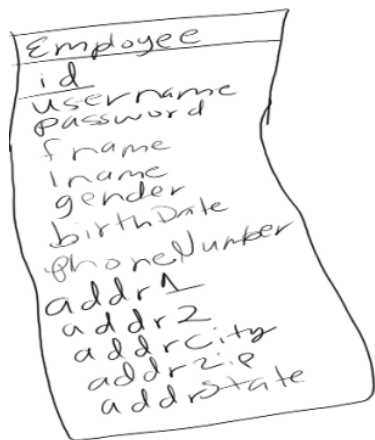 Employee
id
username
password
fname
lname
gender
birthDate
phoneNumber
addr1
addr2
addrCity
addrzip
addrState